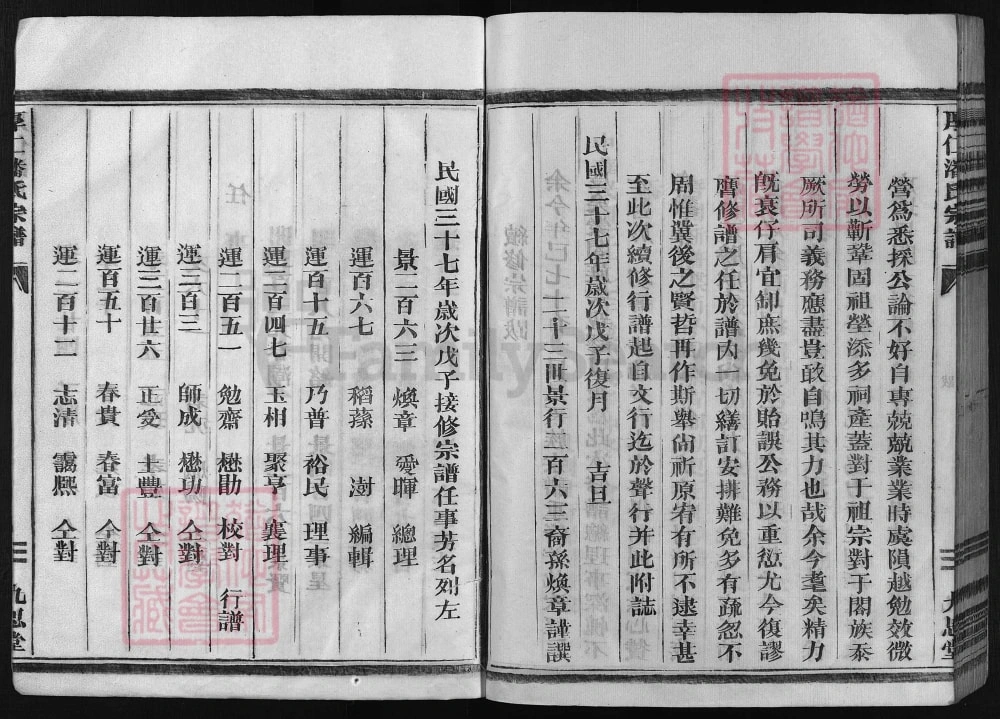 厚仁潘氏宗譜
九思堂
營爲悉採公論不好自專兢兢業業時虞隕越勉效微
勞以蘄鞏固祖塋添多祠產蓋對于祖宗對于闔族忝
厥所司義務應盡豈敢自鳴其力也哉余今耄矣精力
既衰仔肩宜卸庶幾免於貽誤公務以重愆尤今復謬
膺修譜之任於譜內一切繕訂安排難免多有疏忽不
周惟冀後之賢哲再作斯舉尙祈原宥有所不逮幸甚
至此次續修行譜起自文行迄於聲行并此附誌
民國三十七年歲次戊子復月　吉旦
余今年已七二十三世景行二百六三裔孫煥章謹譔
民國三十七年歲次戊子接修宗譜任事芳名列左
景二百六三　煥章　愛暉　總理
運百六七　稻蓀　澍　編輯
運百十五　乃普　裕民　理事
運二百四七　玉相　聚亨　襄理
運二百五一　勉齋　懋勛　校對　行譜
運三百三　師成　懋功　仝對
運三百廿六　正受　士豐　仝對
運百五十　春貴　春富　仝對
運二百十二　志清　靄熙　仝對
厚仁潘氏宗譜
九思堂